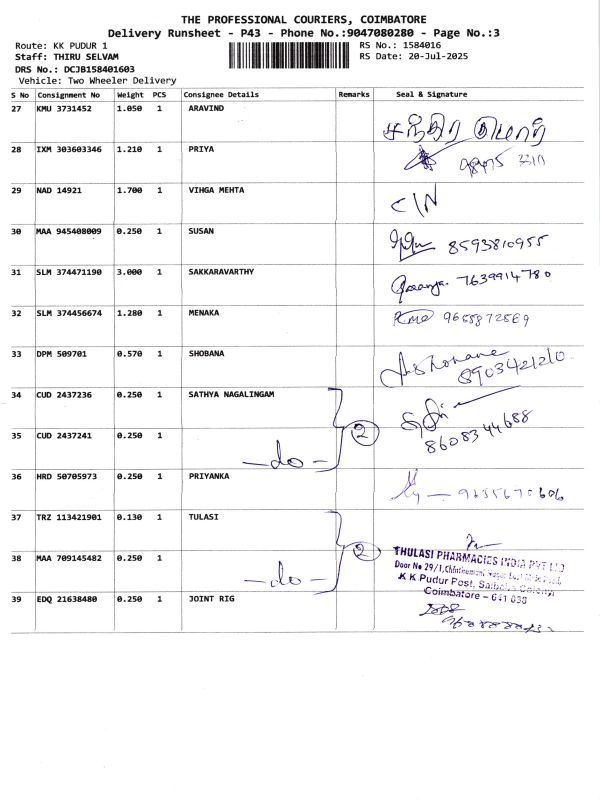 THE PROFESSIONAL COURIERS, COIMBATORE
Delivery Runsheet - P43 - Phone No.:9047080280 - Page No.:3
Route: KK PUDUR 1 RS No.: 1584016
Staff: THIRU SELVAM RS Date: 20-Jul-2025
DRS No.: DCJB158401603
Vehicle: Two Wheeler Delivery
S No Consignment No Weight PCS Consignee Details Remarks Seal & Signature
27 KMU 3731452 1.050 1 ARAVIND
28 IXM 303603346 1.210 1 PRIYA
29 NAD 14921 1.700 1 VIHGA MEHTA C/N
30 MAA 945408009 0.250 1 SUSAN 8593810955
31 SLM 374471190 3.000 1 SAKKARAVARTHY 7639914780
32 SLM 374456674 1.280 1 MENAKA 9655872569
33 DPM 509701 0.570 1 SHOBANA 8903421210
34 CUD 2437236 0.250 1 SATHYA NAGALINGAM
2
35 CUD 2437241 0.250 1 -do- 8608344688
36 HRD 50705973 0.250 1 PRIYANKA 9635670606
37 TRZ 113421901 0.130 1 TULASI
2
THULASI PHARMACIES INDIA PVT LTD
Door No 29/1,
K K Pudur Post, Saibaba Colony,
Coimbatore - 641 038
38 MAA 709145482 0.250 1 -do-
39 EDQ 21638480 0.250 1 JOINT RIG